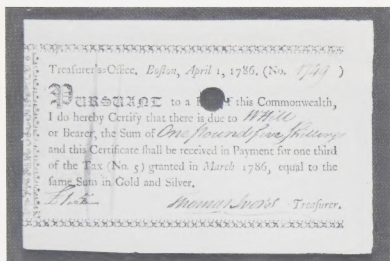 Treasurer's-Office. Boston, April 1, 1786. (No. 1749 )
PURSUANT to a of this Commonwealth,
I do hereby Certify that there is due to
or Bearer, the Sum of One Pound five Shillings
and this Certificate shall be received in Payment for one third
of the Tax (No. 5) granted in March 1786, equal to the
same Sum in Gold and Silver.
Thomas Ivers Treasurer.